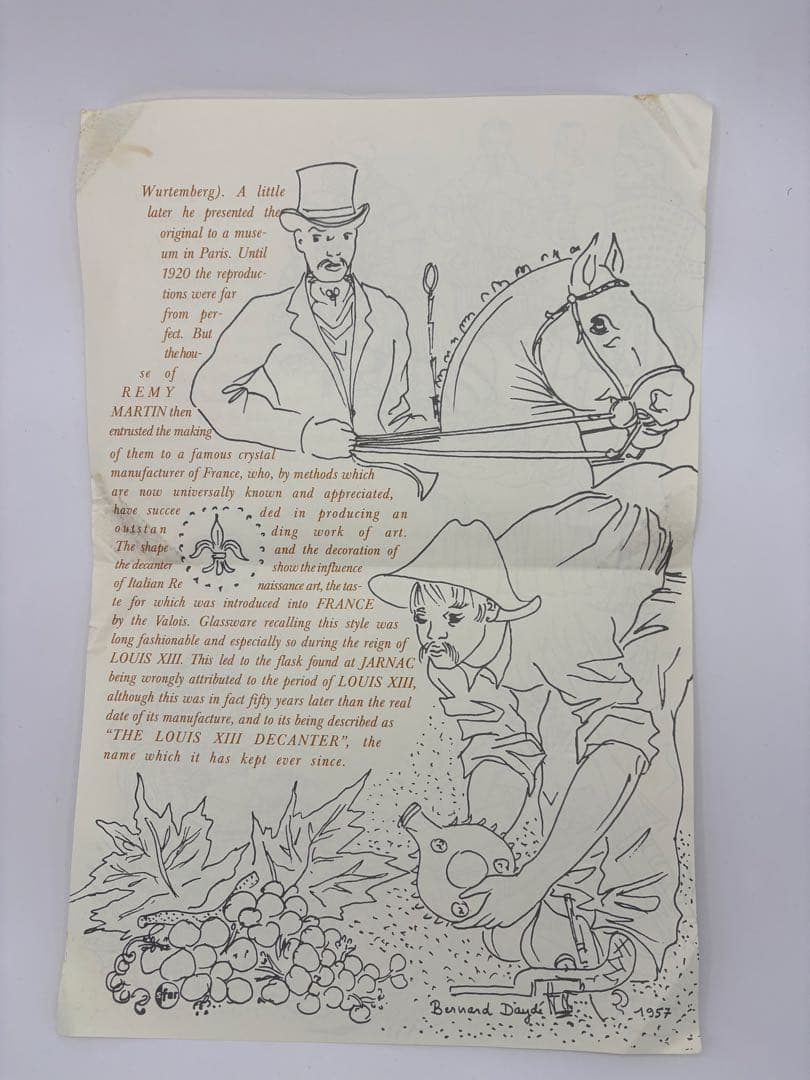 Wurtemberg). A little
later he presented the
original to a muse-
um in Paris. Until
1920 the reproduc-
tions were far
from per-
fect. But
the hou-
se of
REMY
MARTIN then
entrusted the making
of them to a famous crystal
manufacturer of France, who, by methods which
are now universally known and appreciated,
have succee ded in producing an
outstan ding work of art.
The shape and the decoration of
the decanter show the influence
of Italian Re naissance art, the tas-
te for which was introduced into FRANCE
by the Valois. Glassware recalling this style was
long fashionable and especially so during the reign of
LOUIS XIII. This led to the flask found at JARNAC
being wrongly attributed to the period of LOUIS XIII,
although this was in fact fifty years later than the real
date of its manufacture, and to its being described as
"THE LOUIS XIII DECANTER", the
name which it has kept ever since.
Bernard Daydé 1957